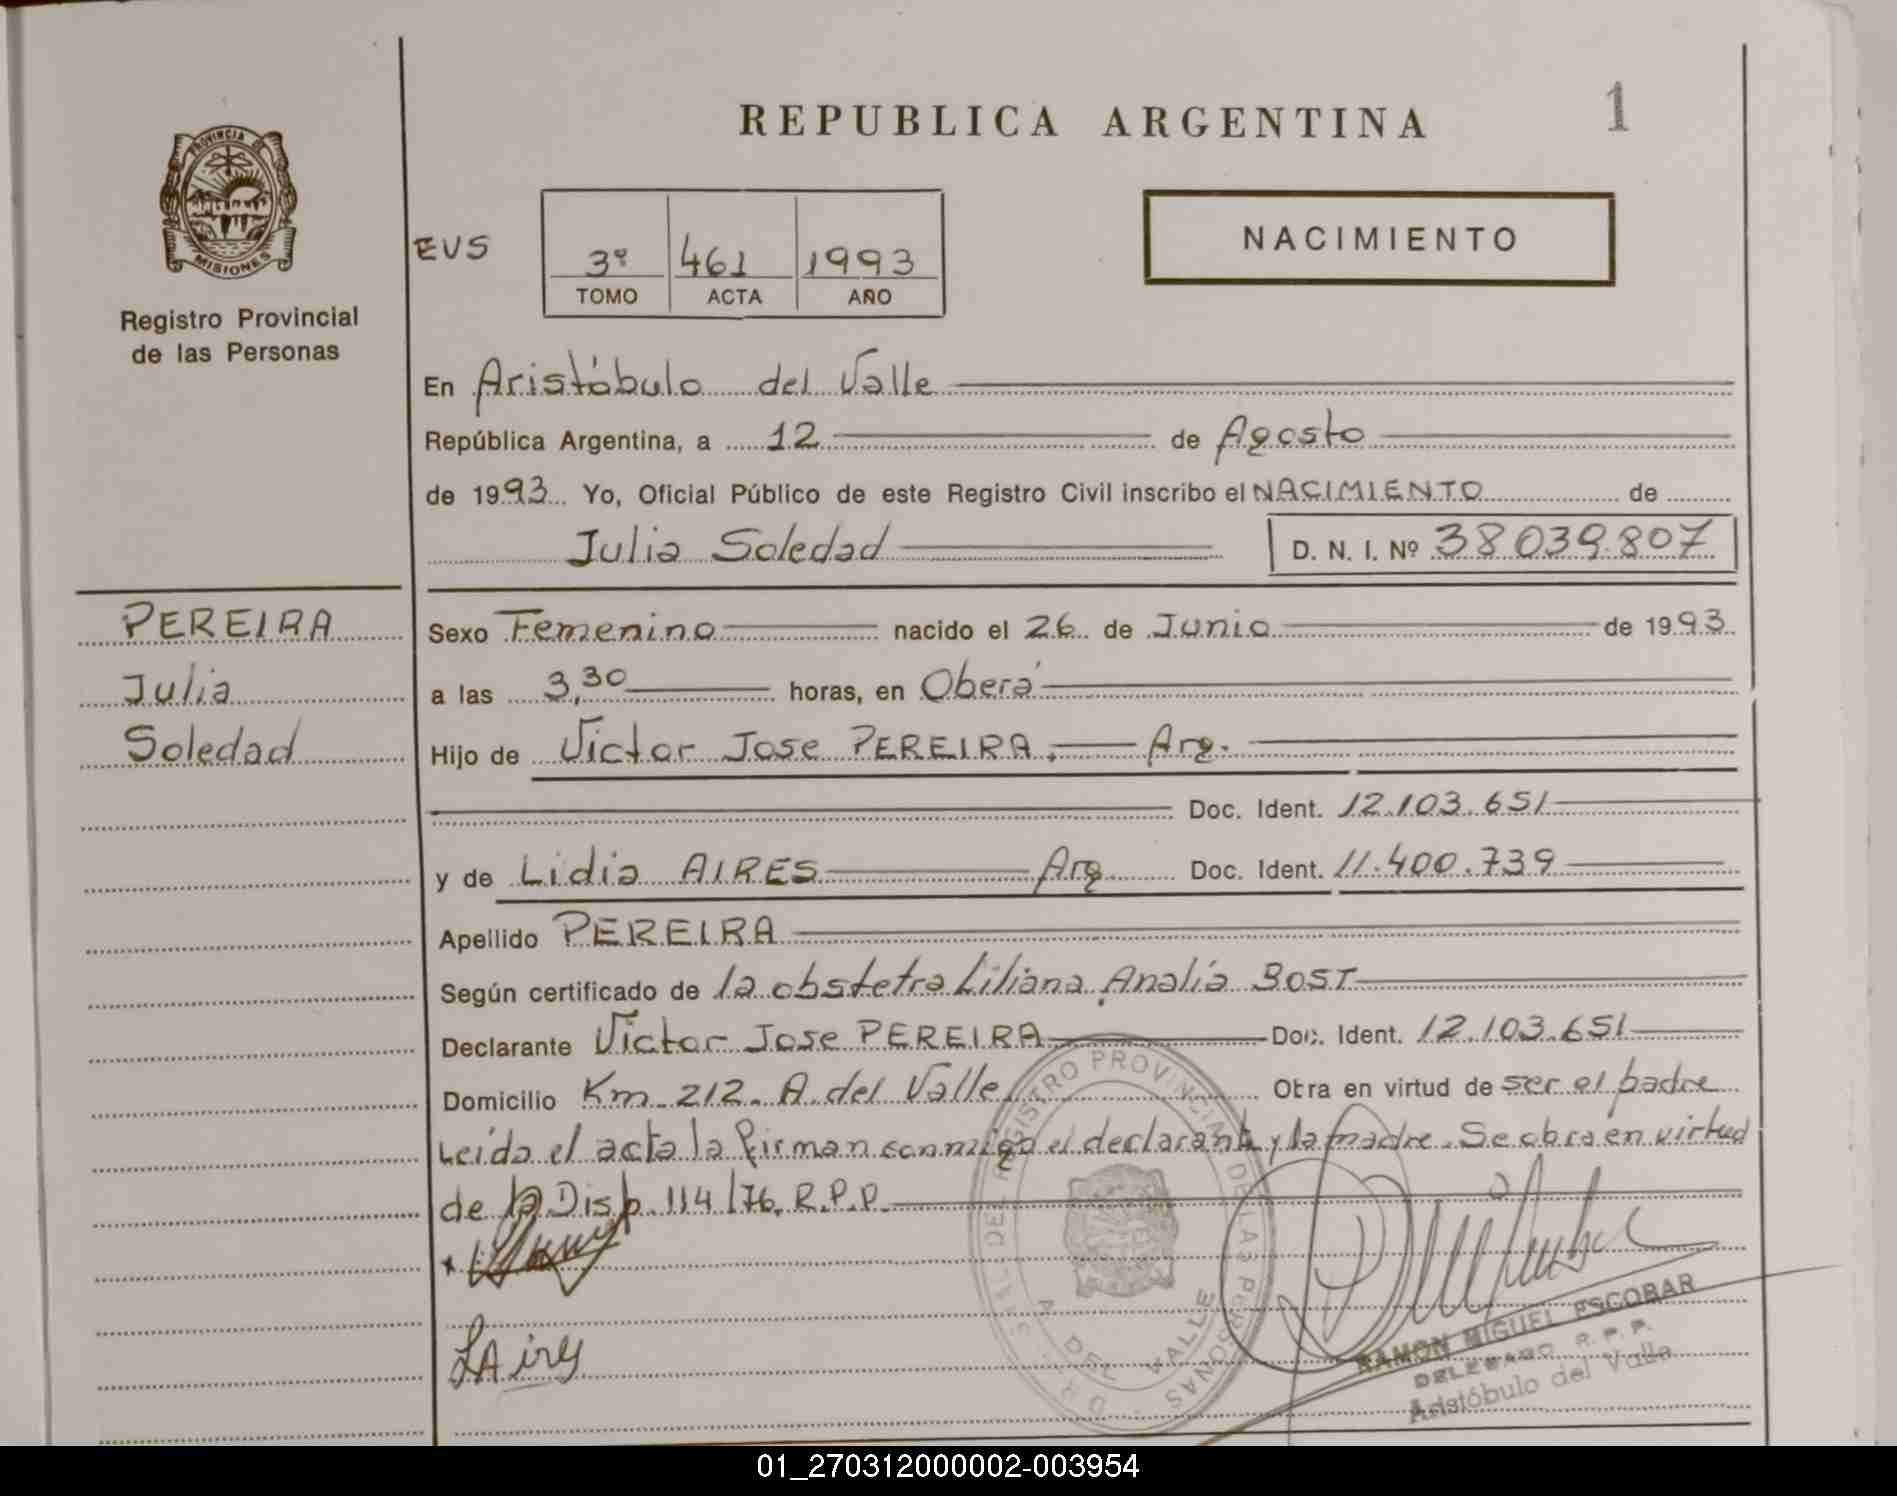 REPUBLICA ARGENTINA
1
PROVINCIA DE
MISIONES
Registro Provincial
de las Personas
EVS
3º 461 1993
TOMO ACTA AÑO
NACIMIENTO
En Aristóbulo del Valle
República Argentina, a 12 de Agosto
de 1993 Yo, Oficial Público de este Registro Civil inscribo el NACIMIENTO de
Julia Soledad D. N. I. Nº 38 039.807
PEREIRA
Julia
Soledad
Sexo Femenino nacido el 26 de Junio de 1993
a las 3,30 horas, en Oberá
Hijo de Victor Jose PEREIRA, Arg.
Doc. Ident. 12.103.651
y de Lidia AIRES Arg. Doc. Ident. 11.400.739
Apellido PEREIRA
Según certificado de la obstetra Liliana Analía BOST
Declarante Victor Jose PEREIRA Doc. Ident. 12.103.651
Domicilio Km 212. A. del Valle Obra en virtud de ser el padre
Leída el acta la firman conmigo el declarante y la madre. Se obra en virtud
de la Disp. 114/76, R.P.P.
LAires
REGISTRO PROVINCIAL DE LAS PERSONAS
A DEL VALLE
RAMON MIGUEL ESCOBAR
DELEGADO R. P. P.
Aristóbulo del Valle
01_270312000002-003954